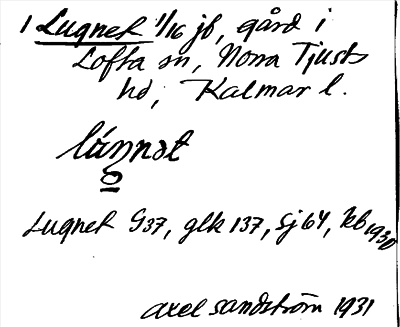 1 Lugnet 1/16 jb, gård i
Lofta sn, Norra Tjusts
hd, Kalmar l.
Lugnet G37, glk 137, Sj 64, kb 1930
Axel Sandström 1931